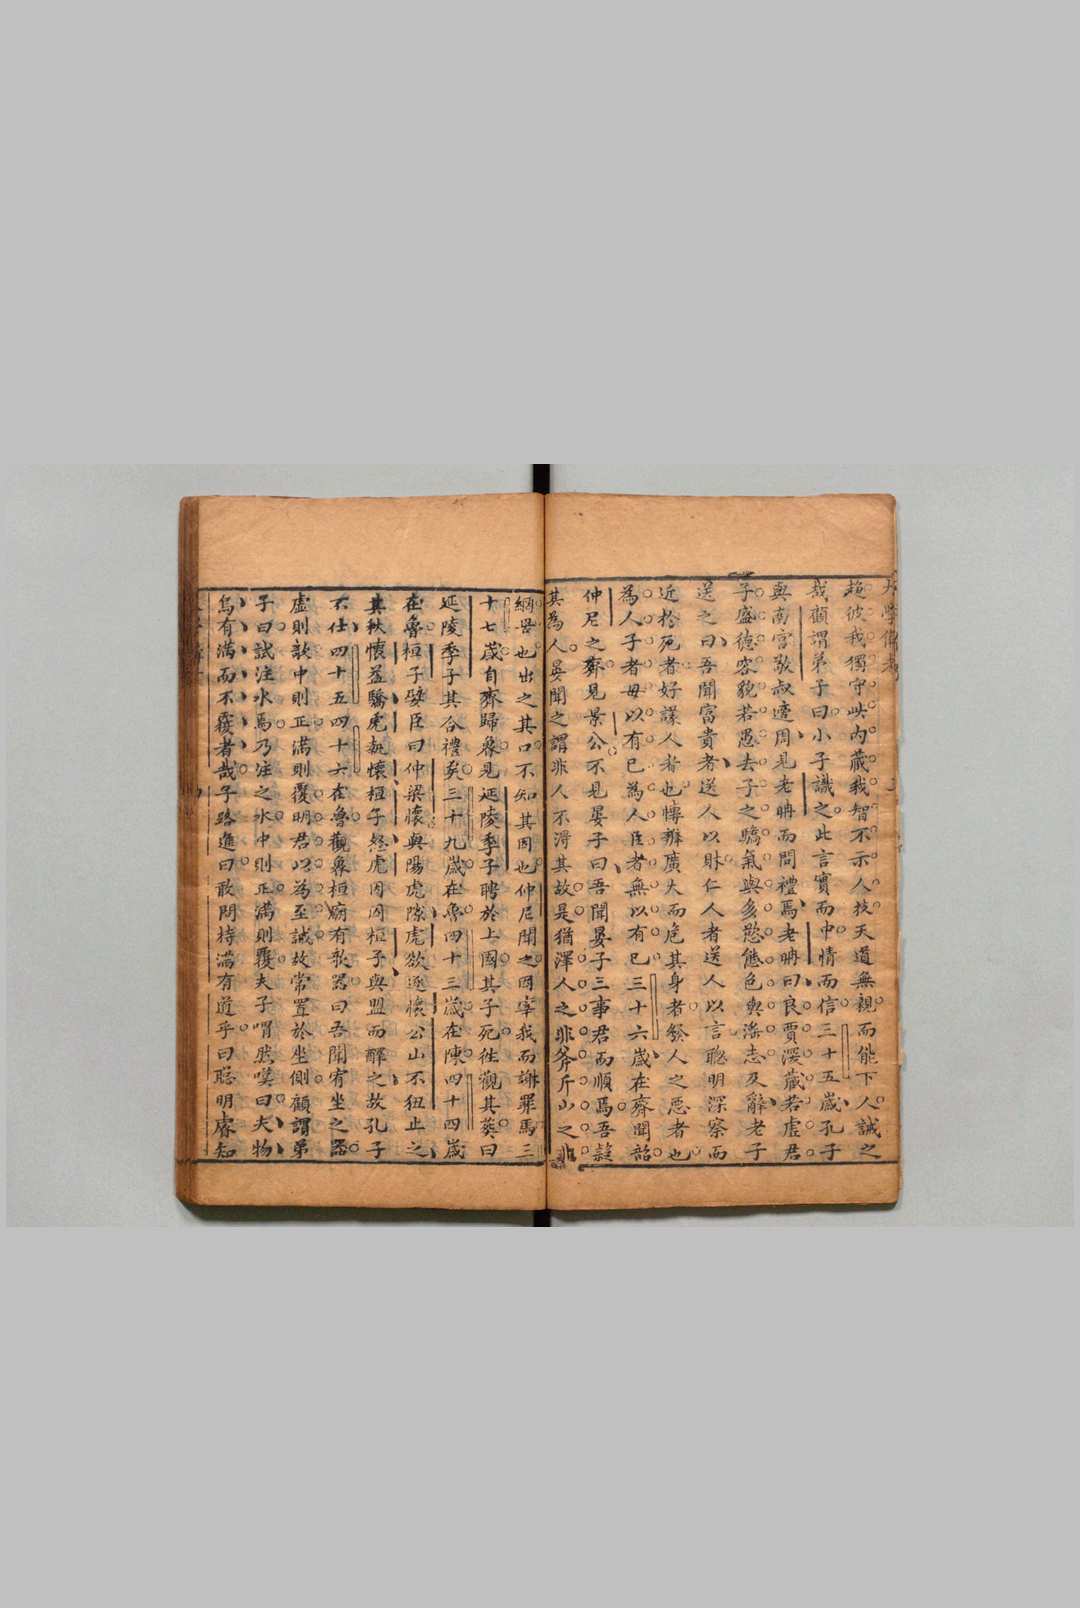 趍彼我獨守此内蔵我智不示人技天道無親而能下人誡之
哉顧謂弟子曰小子識之此言實而中情而信三十五歳孔子
與南宮敬叔適周見老聃而問禮焉老聃曰良賈深蔵若虚君
子盛德容貌若愚去子之驕氣與多慾態色與滛志及辭老子
送之曰吾聞富貴者送人以財仁人者送人以言聦明深察而
近於死者好議人者也慱辯廣大而危其身者發人之惡者也
為人子者毋以有已為人臣者無以有已三十六歳在齊聞韶
仲尼之齊見景公不見晏子曰吾聞晏子三事君而順焉吾疑
其為人晏聞之謂非人不淂其故是猶澤人之非斧斤山之非
網罟也出之其口不知其因也仲尼聞之因宰我而謝罪焉三
十七歳自齊歸魯見延陵季子聘於上國其子死徃觀其葬曰
延陵季子其合禮矣三十九歳在魯四十三歳在陳四十四歳
在魯桓子嬖臣曰仲梁懷與陽虎隙虎欲逐懷公山不狃止之
其秋懷益驕虎執懷桓子怒虎因囚桓子與盟而醳之故孔子
不仕四十五四十六在魯觀魯桓廟有欹器曰吾聞宥坐之器
虚則欹中則正滿則覆明君以為至誠故常置於坐側顧謂弟
子曰試注水焉乃注之水中則正滿則覆夫子喟然嘆曰夫物
烏有滿而不覆者哉子路進曰敢問持滿有道乎曰聦明睿知